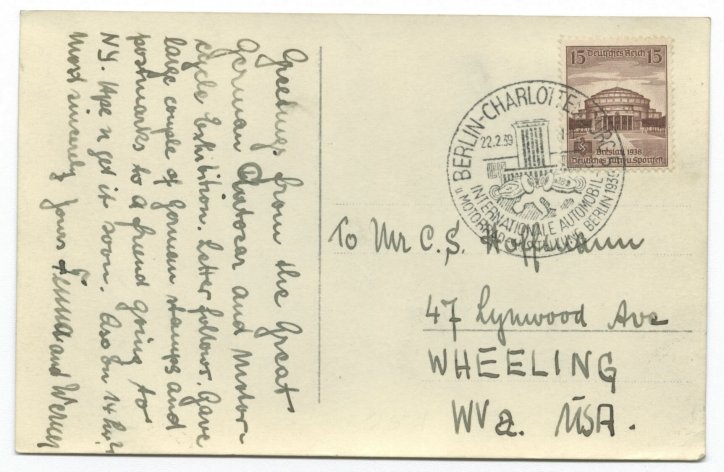 Greetings from the Great
German Autocar and Motor-
cycle Exhibition. Letter follows. Gave
large couple of German stamps and
postmarks to a friend going to
NY. Hope u get it soon. Also on 14
Most sincerely yours and Werner
15 Deutsches Reich 15
Breslau 1938
BERLIN-CHARLOTTENBURG
22.2.39
INTERNATIONALE AUTOMOBIL-
u MOTORRAD-AUSSTELLUNG BERLIN 1939
To Mr C.S. Hoffmann
47 Lynwood Ave
WHEELING
W Va. USA.